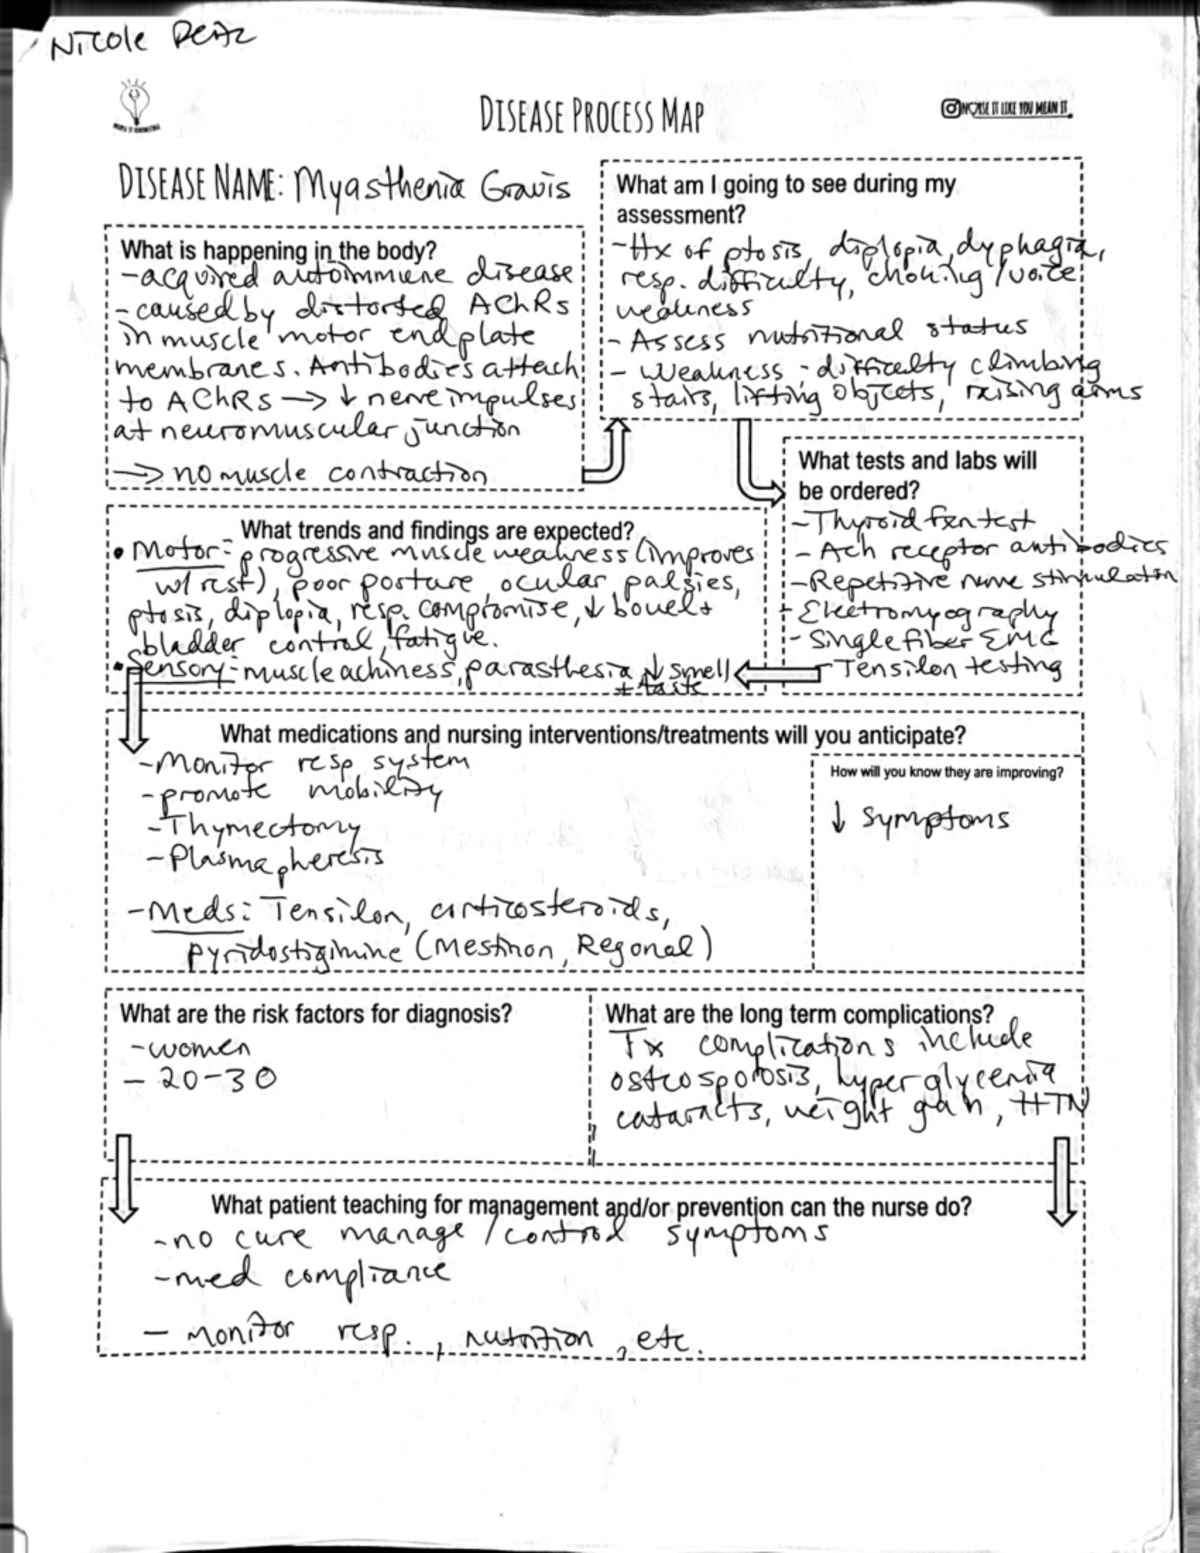 Nicole
DISEASE PROCESS MAP
NURSE IT LIKE YOU MEAN IT
DISEASE NAME: Myasthenia Gravis
What is happening in the body?
-acquired autoimmune disease
-caused by distorted AChRs
in muscle motor endplate
membranes. Antibodies attach
to AChRs → ↓ nerve impulses
at neuromuscular junction
→ no muscle contraction
What am I going to see during my
assessment?
-Hx of ptosis, diplopia, dyphagia,
resp. difficulty, choking/voice
weakness
- Assess nutritional status
- Weakness - difficulty climbing
stairs, lifting objects, raising arms
What tests and labs will
be ordered?
-Thyroid fxn test
- Ach receptor antibodies
-Repetitive nerve stimulation
- Electromyography
- Single fiber EMG
-Tensilon testing
What trends and findings are expected?
• Motor: progressive muscle weakness (improves
w/ rest), poor posture, ocular palsies,
ptosis, diplopia, resp. compromise, ↓ bowel +
bladder control, fatigue.
• Sensory: muscle achiness, parasthesia ↓ smell
+ taste
What medications and nursing interventions/treatments will you anticipate?
-Monitor resp system
-promote mobility
-Thymectomy
-Plasmapheresis
-Meds: Tensilon, corticosteroids,
pyridostigimine (Mestinon, Regonal)
How will you know they are improving?
↓ symptoms
What are the risk factors for diagnosis?
-women
- 20-30
What are the long term complications?
Tx complications include
osteosporosis, hyperglycemia
cataracts, weight gain, HTN
What patient teaching for management and/or prevention can the nurse do?
-no cure manage/control symptoms
-med compliance
- monitor resp., nutrition, etc.